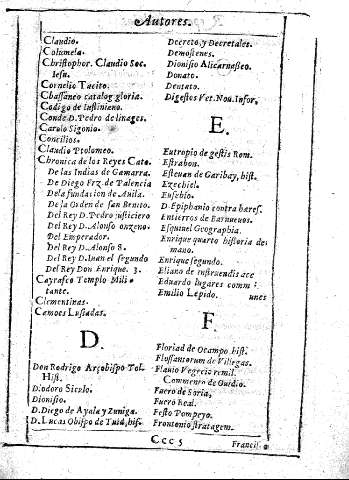 Autores.
Claudio.
Columela.
Christophor. Claudio Soc.
Iesu.
Cornelio Tacito.
Chassaneo catalog gloria.
Codigo de Iustiniano.
Conde D. Pedro de linages.
Carolo Sigonio.
Concilios.
Claudio Ptolomeo.
Chronica de los Reyes Cato.
De las Indias de Gamarra.
De Diego Frz. de Palencia
De la fundacion de Auila.
De la Orden de san Benito.
Del Rey D. Pedro justiciero
Del Rey D. Alonso onzeno.
Del Emperador.
Del Rey D. Alonso 8.
Del Rey D. Iuan el segundo
Del Rey Don Enrique. 3.
Cayrasco Templo Mili
tante.
Clementinas.
Camoes Lusiadas.
D.
Don Rodrigo Arçobispo Tol.
Hist.
Diodoro Siculo.
Dionisio.
D. Diego de Ayala y Zuniga.
D. Lucas Obispo de Tuid, hist.
Decreto, y Decretales.
Demostenes.
Dionisio Alicarnasseo.
Donato.
Dentato.
Digestos Vet. Nou. Infor.
E.
Eutropio de gestis Rom.
Estrabon.
Esteuan de Garibay, hist.
Ezechiel.
Eusebio.
D. Epiphanio contra hæres.
Entierros de Barnueuos.
Esquiuel Geographia.
Enrique quarto historia de
mano.
Enrique segundo.
Eliano de instruendis ace
Eduardo lugares comm
unes
Emilio Lepido.
F.
Floriad de Ocampo hist.
Flossantorum de Villegas.
Flauio Vegecio remil.
Commento de Ouidio.
Fuero de Soria.
Fuero Real.
Festo Pompeyo.
Frontonio stratagem.
Ccc 5
Francis.